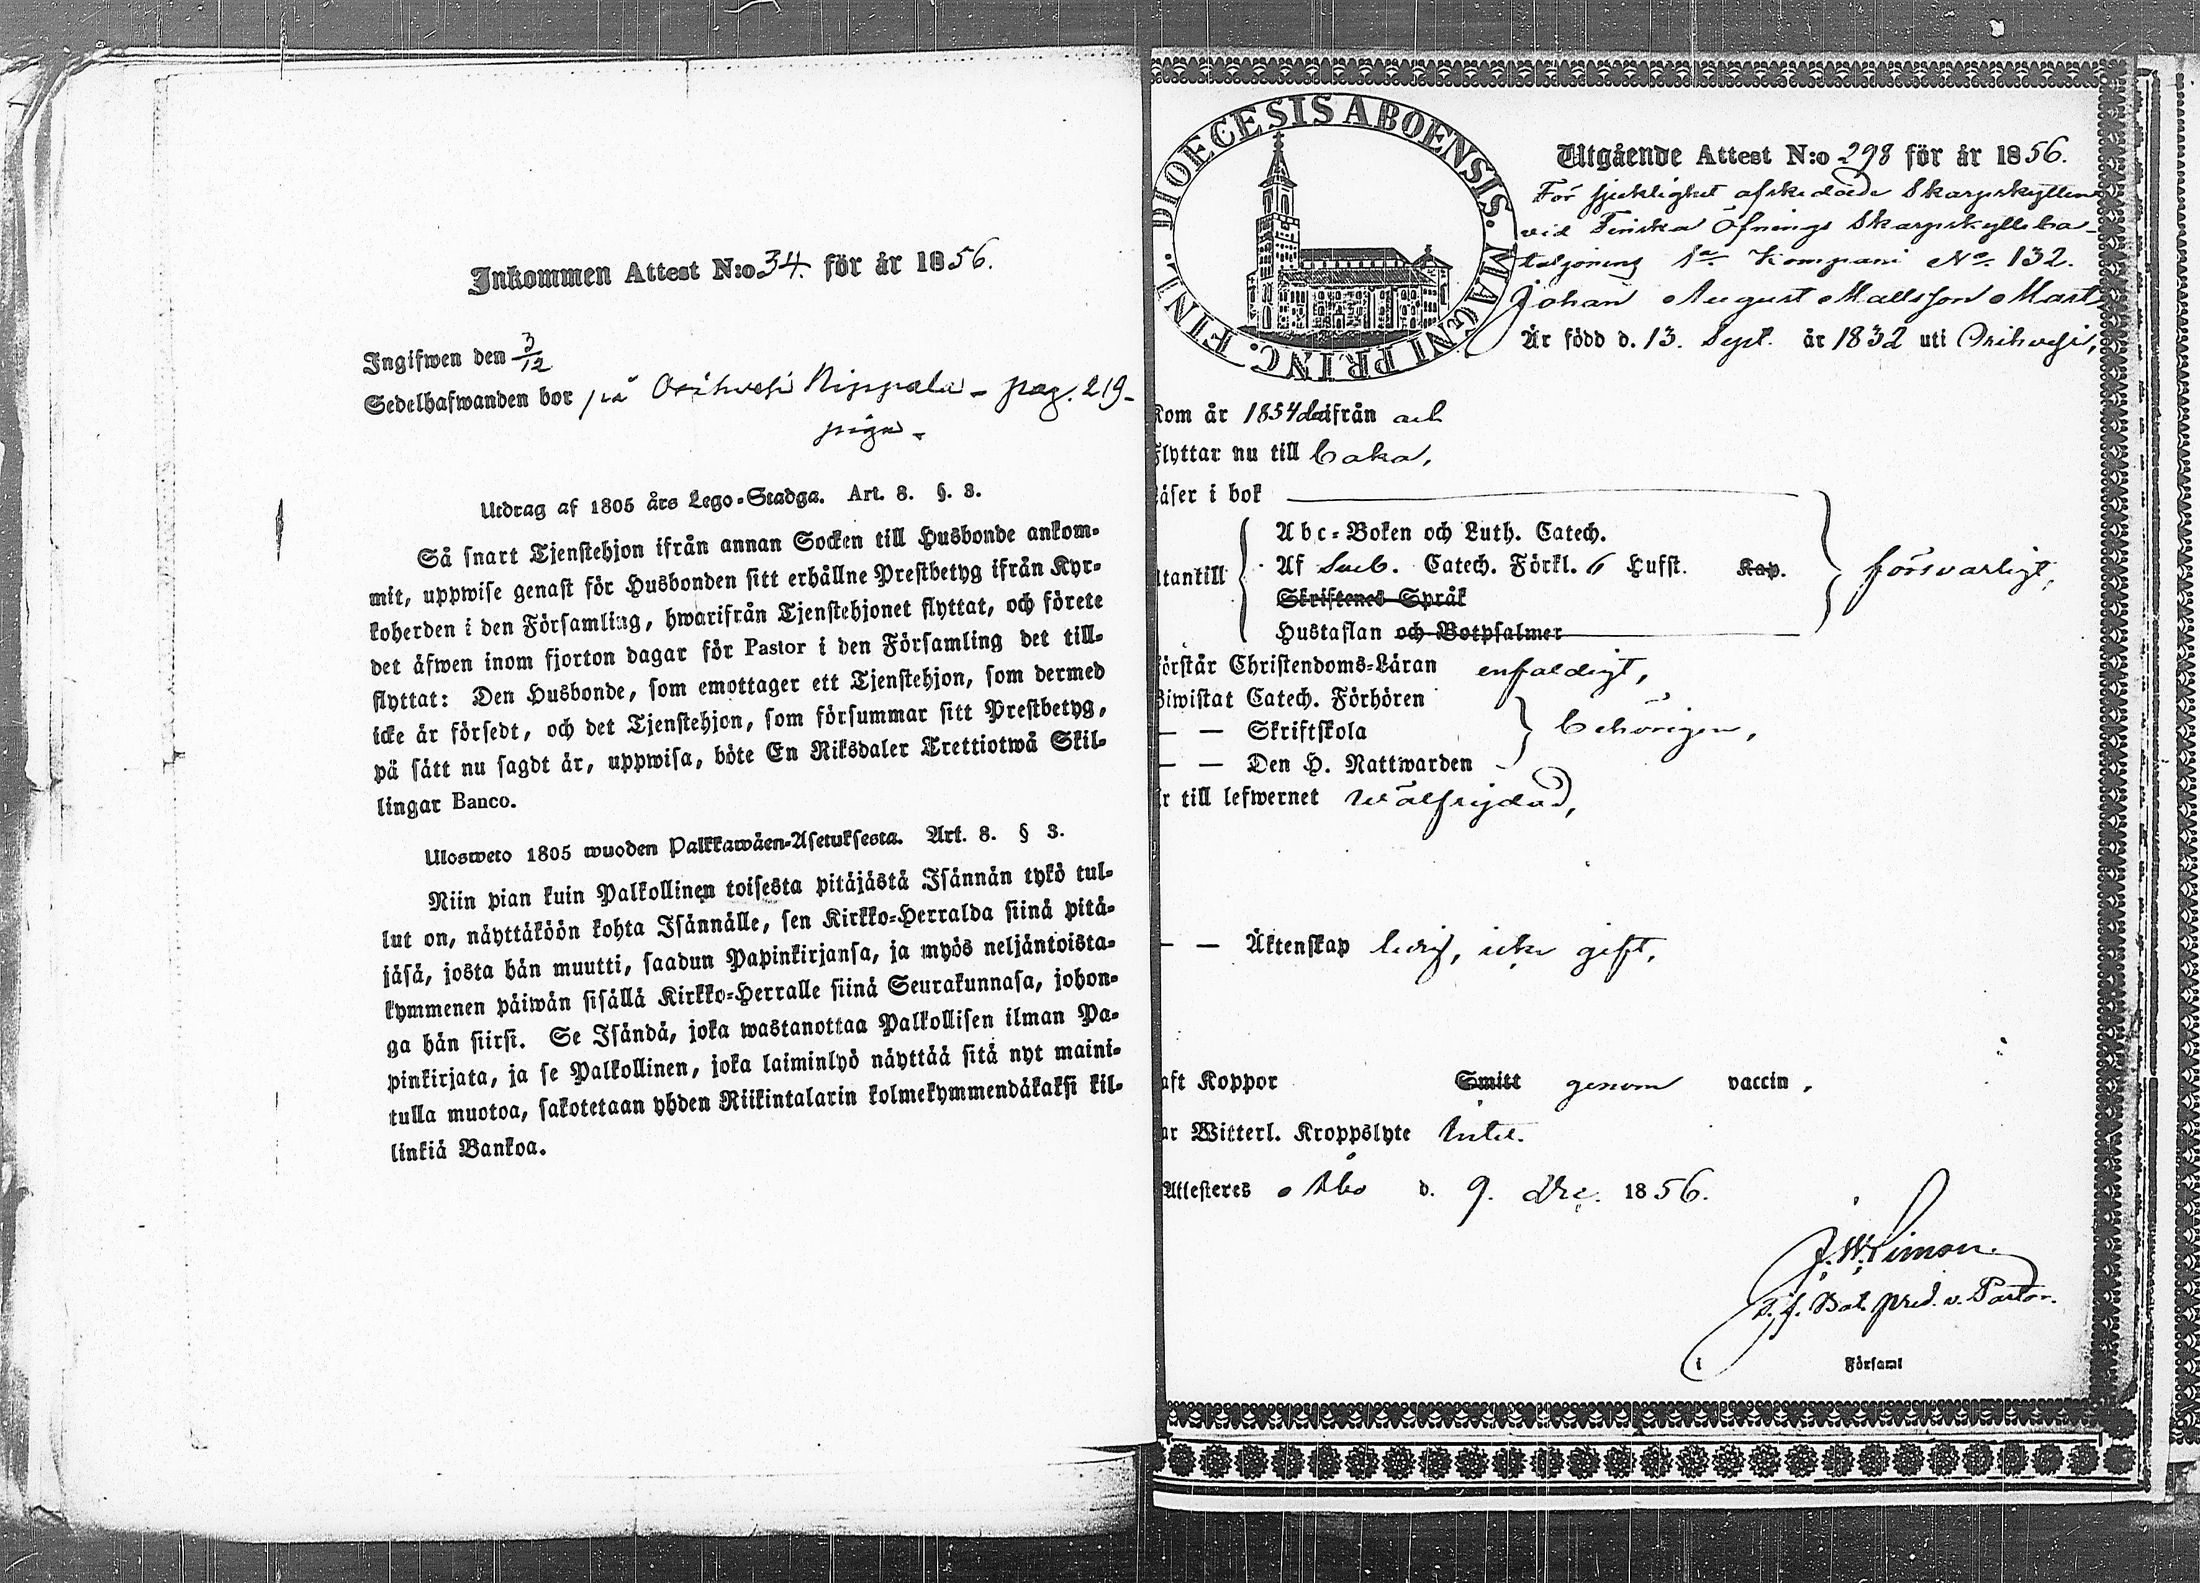 Inkommen Attest N:o 34. för år 1856.
Ingifwen den 3/12
Sedelhafwanden bor på Orihvesi Nippala - pag. 219-
piga -
Utdrag af 1805 års Lego-Stadga. Art. 8. §. 3.
Så snart Tjenstehjon ifrån annan Socken till Husbonde ankom-
mit, uppwise genast för Husbonden sitt erhållne Prestbetyg ifrån Kyr-
koherden i den Församling, hwarifrån Tjenstehjonet flyttat, och förete
det äfwen inom fjorton dagar för Pastor i den Församling det till-
flyttat: Den Husbonde, som emottager ett Tjenstehjon, som dermed
icke är försedt, och det Tjenstehjon, som försummar sitt Prestbetyg,
på sätt nu sagdt är, uppwisa, böte En Riksdaler Trettiotwå Skil-
lingar Banco.
Ulosweto 1805 wuoden Palkkawäen-Asetuksesta. Art. 8. § 3.
Niin pian kuin Palkollinen toisesta pitäjästä Isännän tykö tul-
lut on, näyttäköön kohta Isännälle, sen Kirkko-Herralda siinä pitä-
jäsä, josta hän muutti, saadun Papinkirjansa, ja myös neljäntoista-
kymmenen päiwän sisällä Kirkko-Herralle siinä Seurakunnasa, johon-
ga hän siirsi. Se Isändä, joka wastanottaa Palkollisen ilman Pa-
pinkirjata, ja se Palkollinen, joka laiminlyö näyttää sitä nyt maini-
tulla muotoa, sakotetaan yhden Riikintalarin kolmekymmendäkaksi kil-
linkiä Bankoa.
DIOECESIS ABOENSIS. MAGNI PRINC. FINL.
Utgående Attest N:o 298 för år 1856.
För sjuklighet afskedade Skarpskytten
vid Finska Öfnings Skarpskytteba-
taljonens 1a Kompani No. 132.
Johan August Mattsson Mart
Är född d. 13. Sept. år 1832 uti Orihvesi,
Kom år 1854 därifrån och
Flyttar nu till
Läser i bok
Abc-Boken och Luth. Catech.
Utantill Af Sveb. Catech. Förkl. 6 Hufst. Kap.
Skriftenes Språk
Hustaflan och Botpsalmer
försvarligt,
förstår Christendoms-Läran enfaldigt,
Biwistat Catech. Förhören
— — Skriftskola behörigen,
— — Den H. Nattwarden
är till lefwernet välfrejdad,
— — Äktenskap ledig, icke gift,
haft Koppor Smitt genom vaccin,
har Witterl. Kroppslyte intet.
Attesteres Åbo d. 9. Dec. 1856.
J. W.
Bat. pred. v. Pastor.
i Församl